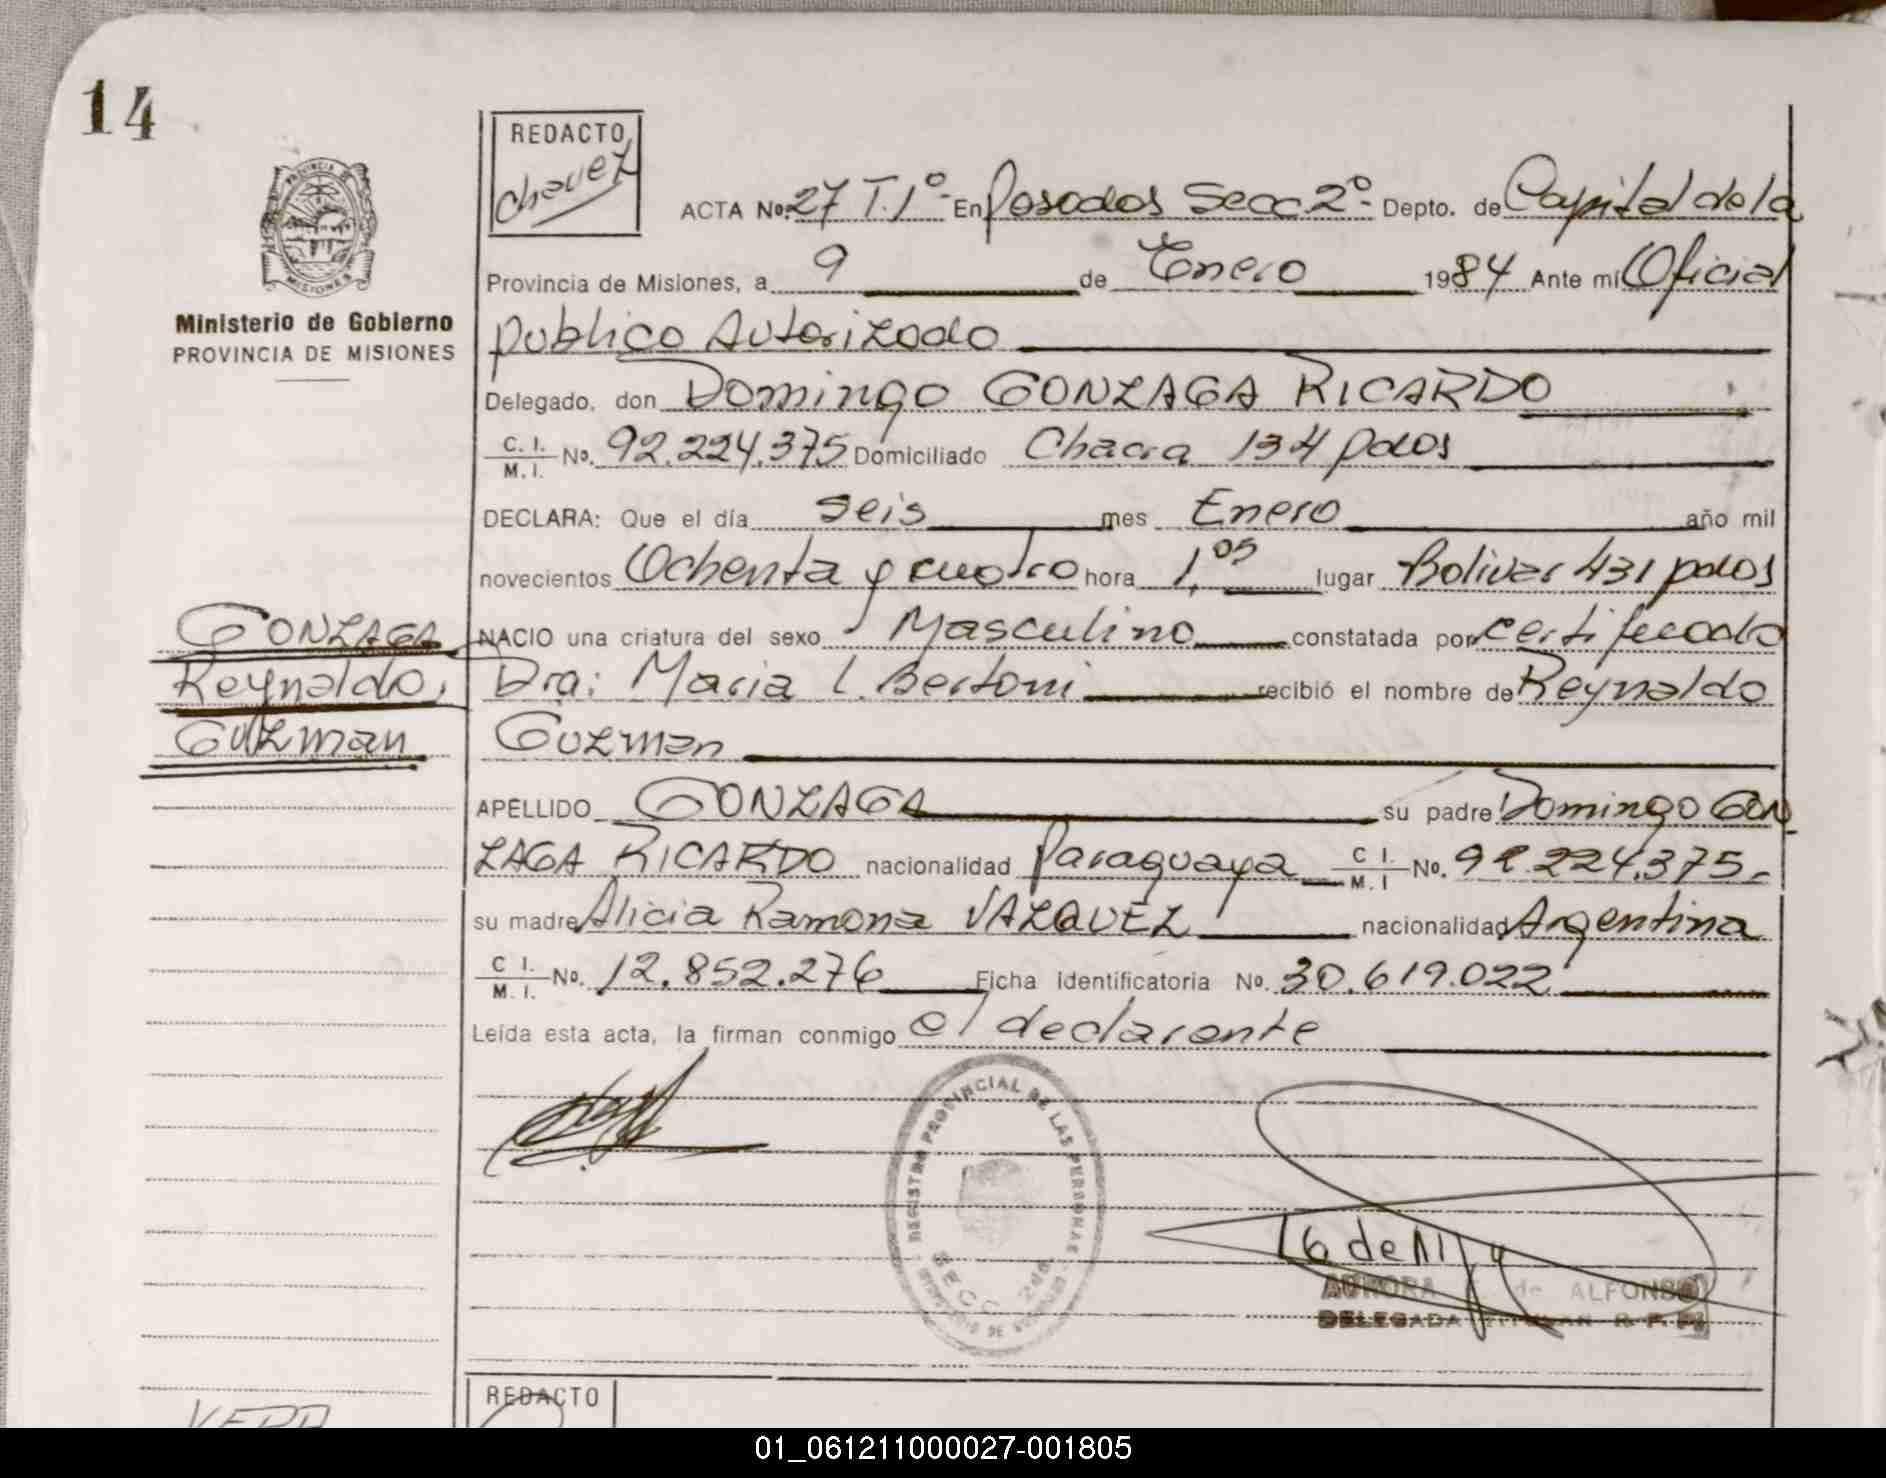 14
PROVINCIA DE
MISIONES
Ministerio de Gobierno
PROVINCIA DE MISIONES
GONZAGA
Reynaldo,
Guzman
REDACTO
Chavez
ACTA No. 27 T.1º- En Posadas Secc 2º- Depto. de Capital de la
Provincia de Misiones, a 9 de Enero 1984 Ante mí Oficial
publico Autorizado
Delegado, don Domingo GONZAGA RICARDO
C. I. M. I. No. 92.224.375 Domiciliado Chacra 134 pdas
DECLARA: Que el día seis mes Enero año mil
novecientos Ochenta y cuatro hora 1,05 lugar Bolivar 431 pdas
NACIO una criatura del sexo Masculino constatada por certificado
Dra: Maria L. Bertoni recibió el nombre de Reynaldo
Guzman
APELLIDO GONZAGA su padre Domingo GON
ZAGA RICARDO nacionalidad Paraguaya C I. M. I No. 92.224.375.-
su madre Alicia Ramona VAZQUEZ nacionalidad Argentina
C I. M. I. No. 12.852.276 Ficha identificatoria No. 30.619.022
Leída esta acta, la firman conmigo el declarante
REGISTRO PROVINCIAL DE LAS PERSONAS
SECC 2da
MINISTERIO DE GOBIERNO
AURORA de ALFONSO
DELEGADA TITULAR R. P. P.
REDACTO
VERA
01_061211000027-001805